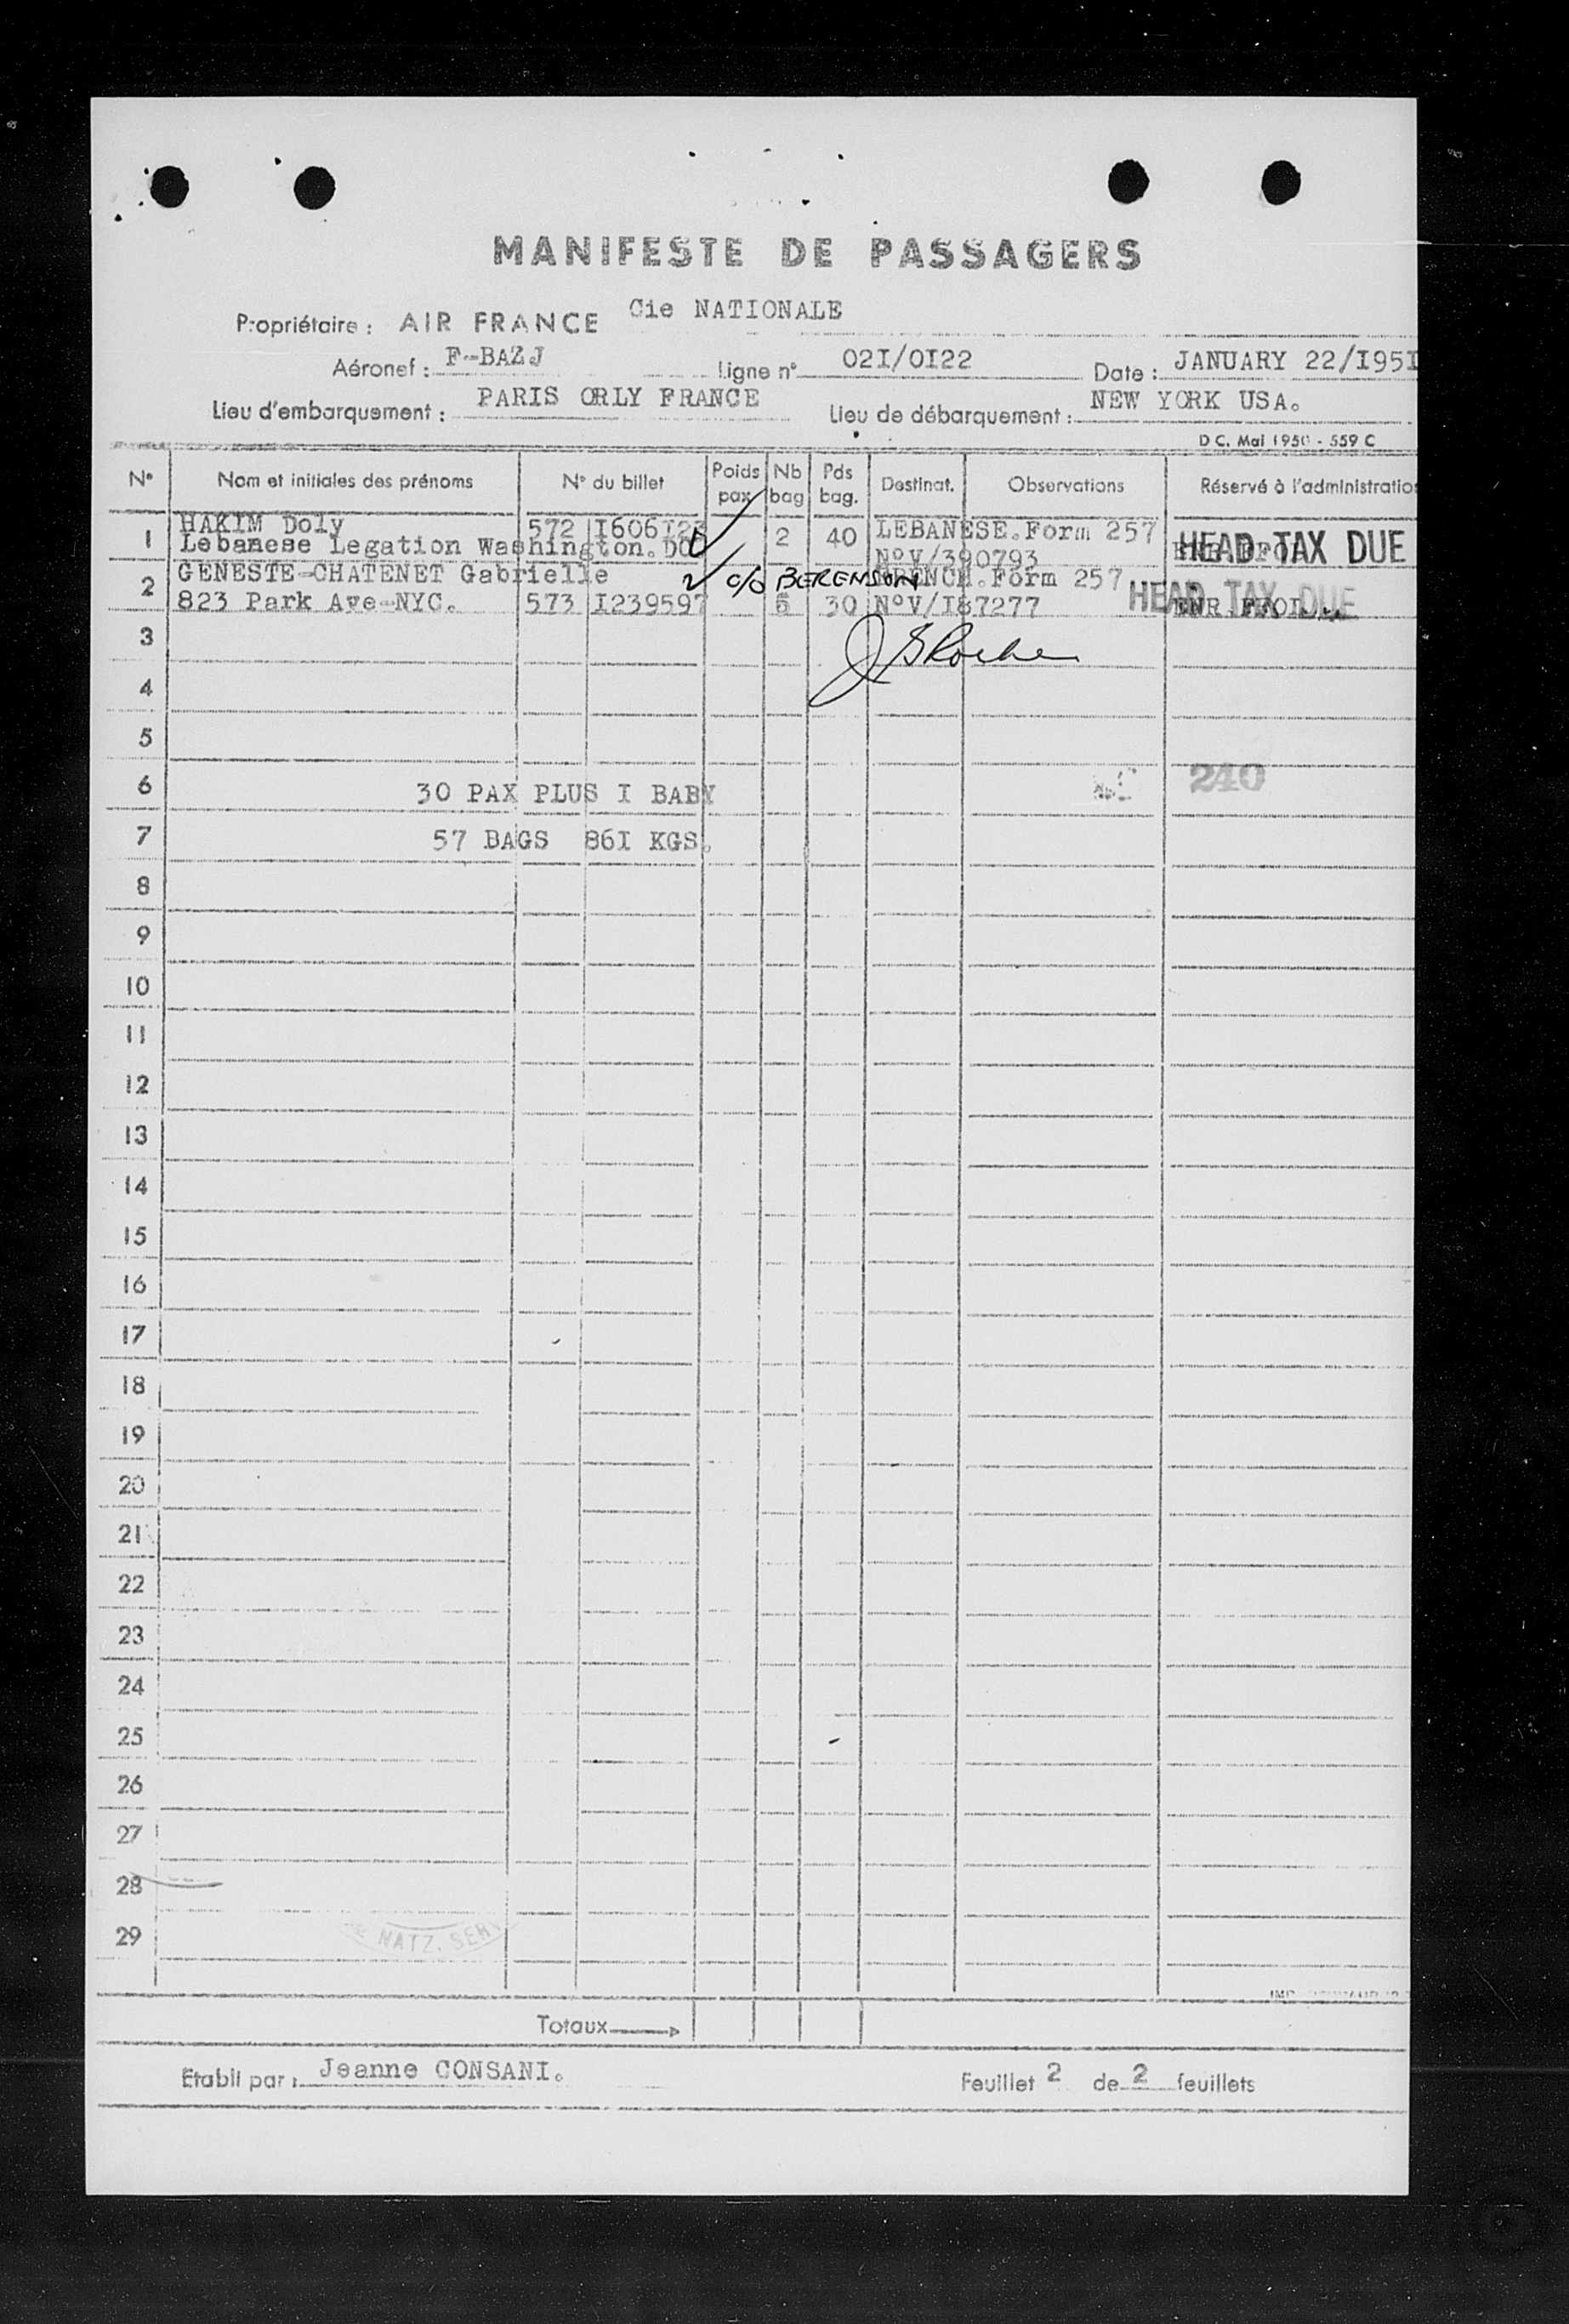 MANIFESTE DE PASSAGERS
Propriétaire : AIR FRANCE Cie NATIONALE
Aéronef : F-BAZJ Ligne n° 02I/0I22 Date : JANUARY 22/I95I
Lieu d'embarquement : PARIS ORLY FRANCE Lieu de débarquement : NEW YORK USA.
D C. Mai 1950 - 559 C
N° Nom et initiales des prénoms N° du billet Poids pax Nb bag Pds bag. Destinat. Observations Réservé à l'administratio
1 HAKIM Doly 572 2 40 LEBANESE.Form 257 HEAD TAX DUE
Lebanese Legation Washington.DC N°V/390793
2 GENESTE-CHATENET Gabrielle c/o BERENSON FRENCH.Form 257 HEAD TAX DUE
823 Park Ave-NYC. 573 I239597 30 N°V/I87277
3
4
5
6 30 PAX PLUS I BABY 240
7 57 BAGS 86I KGS.
8
9
10
11
12
13
14
15
16
17
18
19
20
21
22
23
24
25
26
27
28
29
NATZ. SER
Totaux
Etabli par : Jeanne CONSANI. Feuillet 2 de 2 feuillets